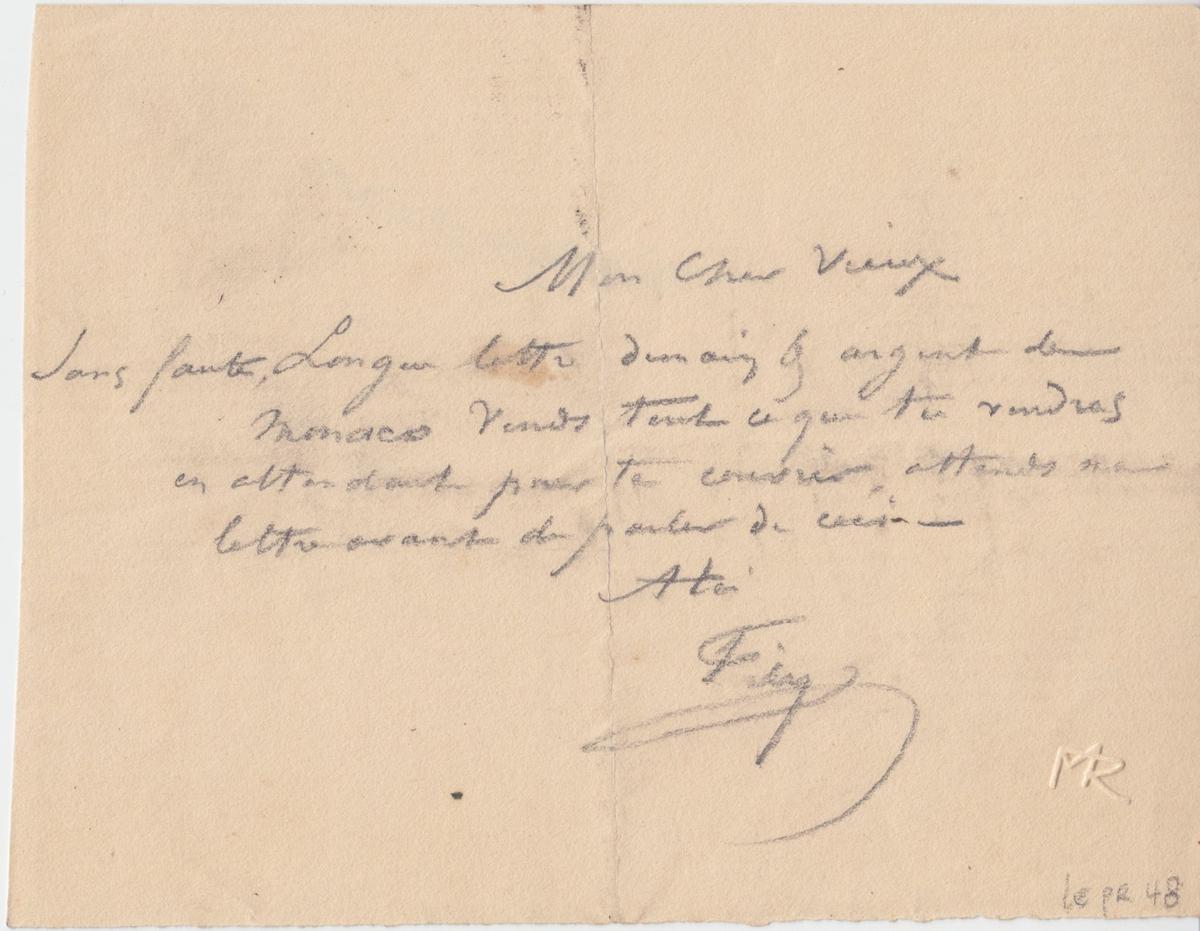 Mon Cher Vieux
Sans faute, Longue lettre demain & argent de
Monaco Vends tout ce que tu vendras
en attendant pour te couvrir, attends ma
lettre avant de parler de ceci –
A toi
MR
48